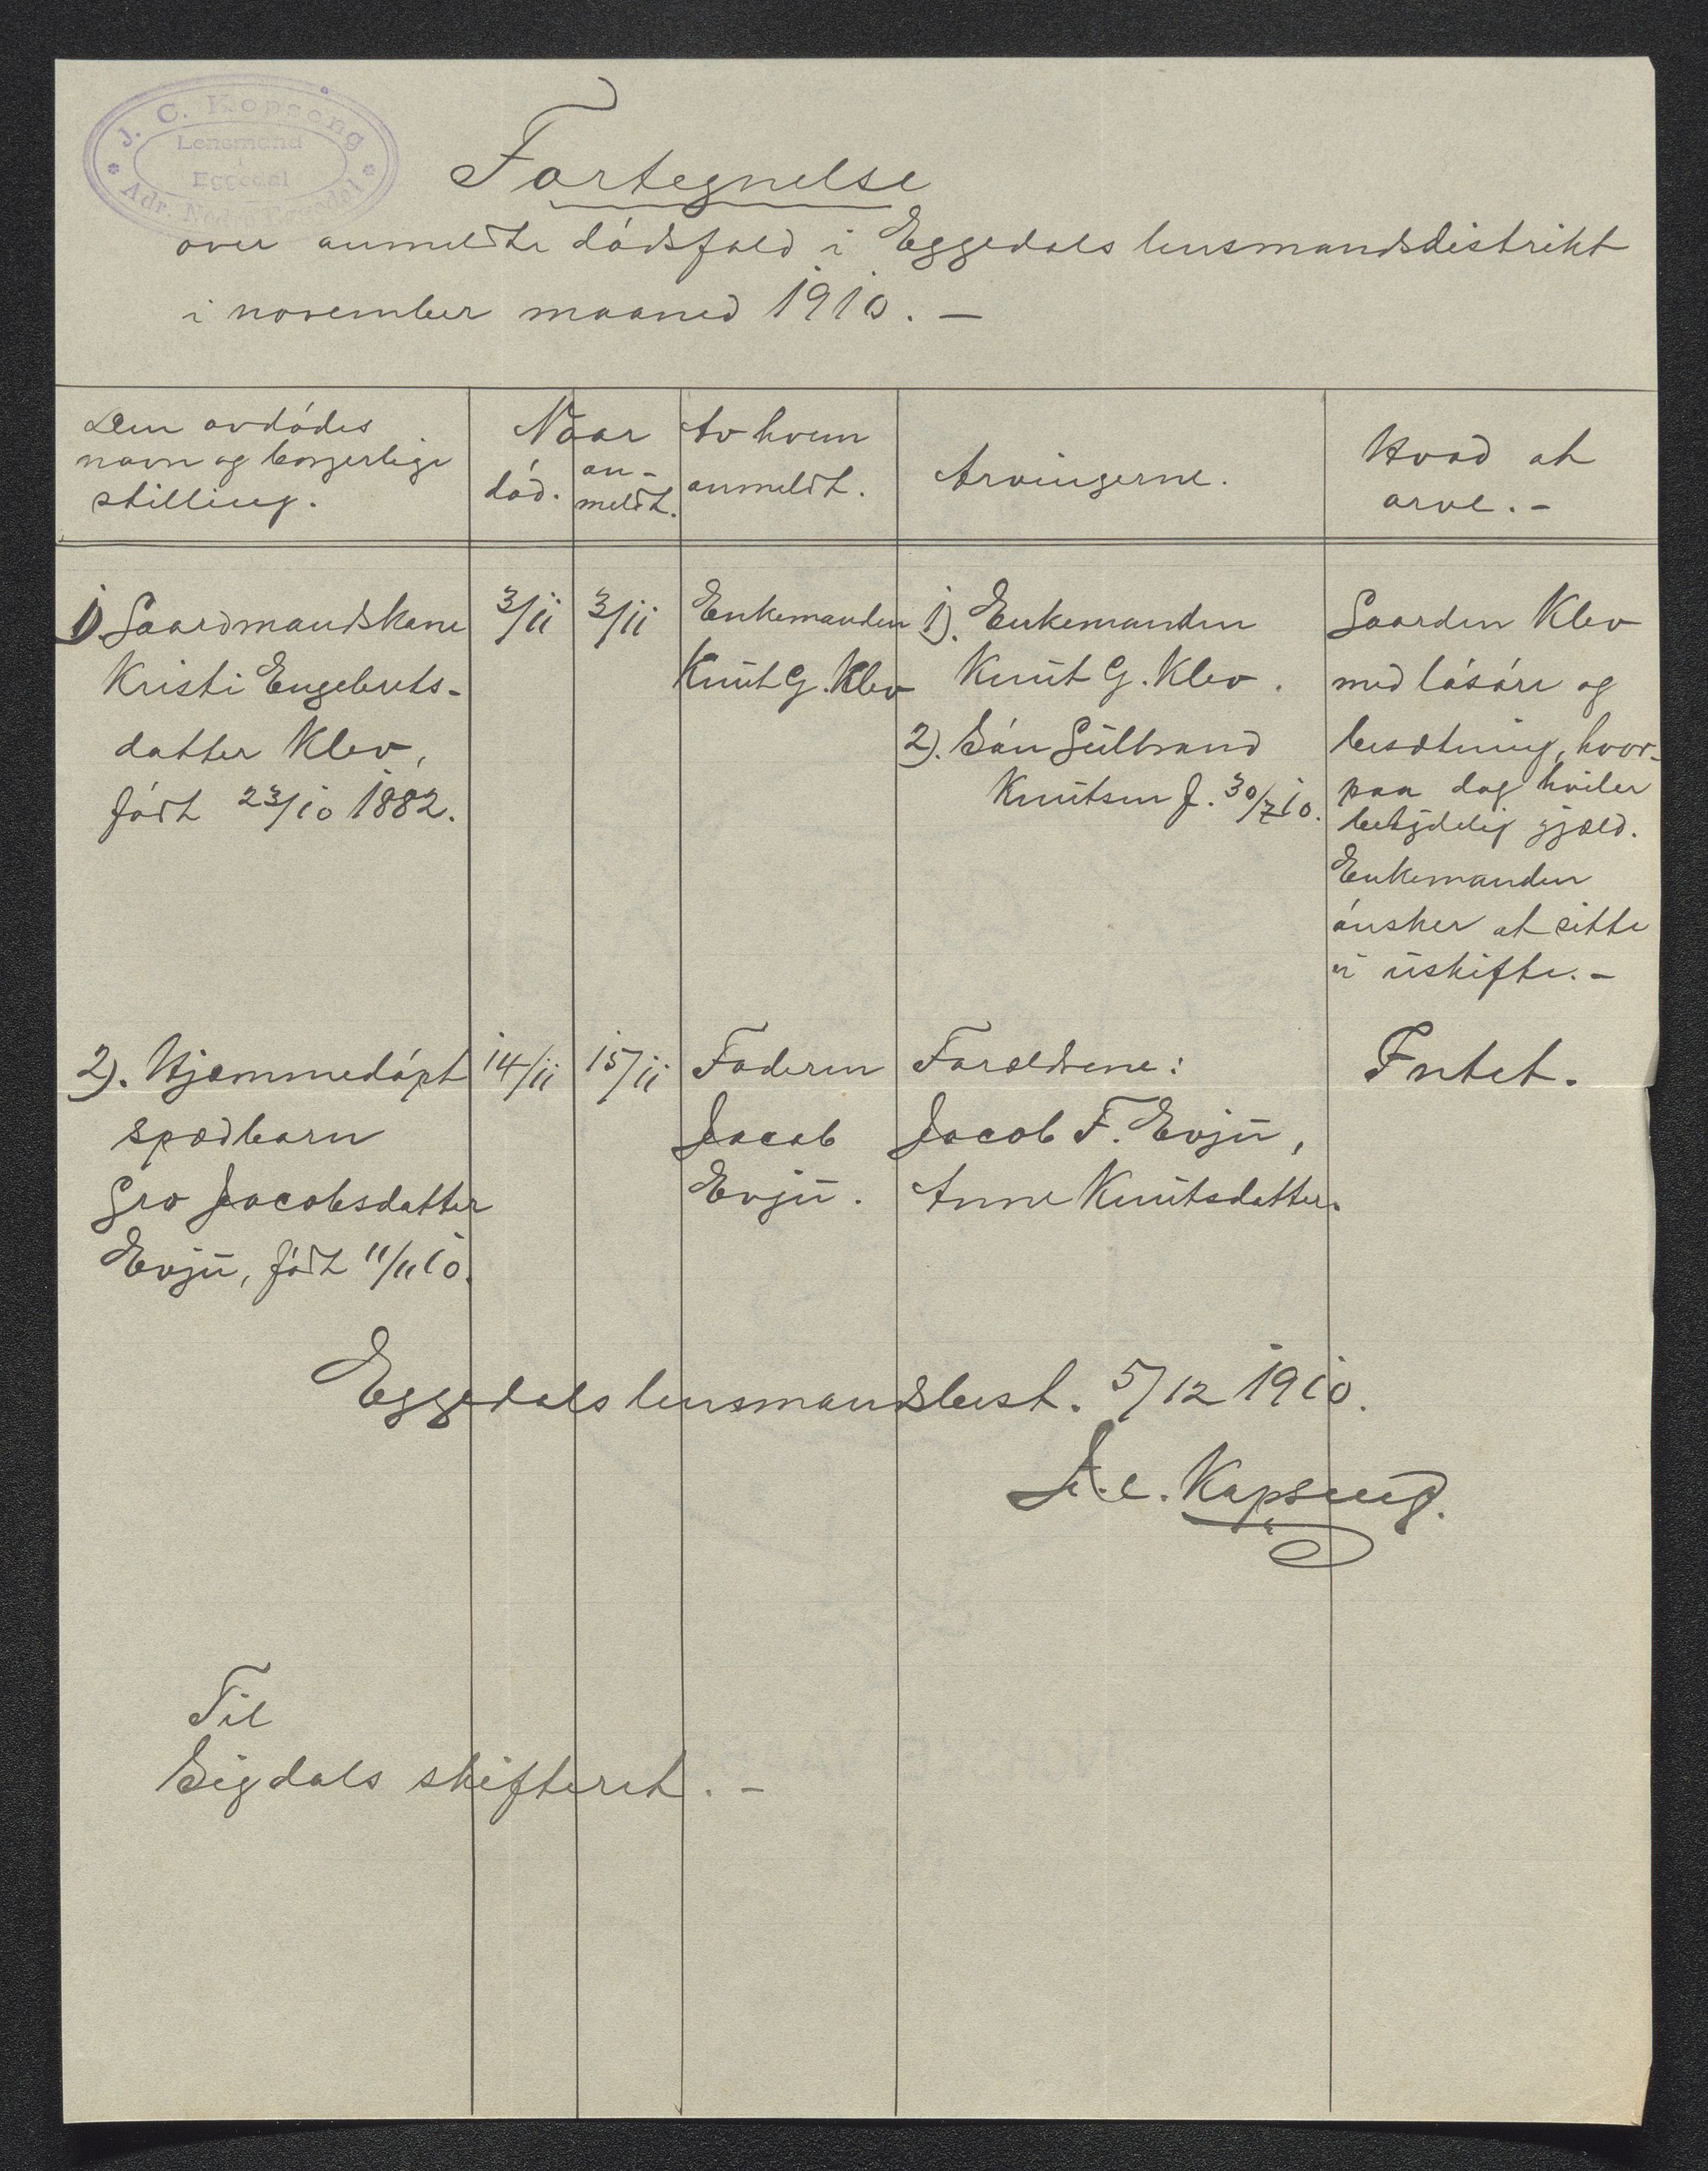 J. C. Kopseng
Lensmand
i
Eggedal
Adr. Nedre Eggedal
Fortegnelse
over anmeldte dødsfald i Eggedals lensmandsdistrikt
i november maaned 1910. –
Den avdødes
navn og borgerlige
stilling.
Naar
død.
an-
meldt.
Av hvem
anmeldt.
Arvingerne.
Hvad at
arve. –
1). Gaardmandskone
Kristi Engebrets-
datter Klev,
født 23/10 1882.
3/11
3/11
Enkemanden
Knut G. Klev
1). Enkemanden
Knut G. Klev.
2). Søn Gulbrand
Knutsen f. 30/7 10.
Gaarden Klev
med løsøre og
besætning, hvor-
paa dog hviler
betydelig gjæld.
Enkemanden
ønsker at sitte
i uskifte. –
2). Hjemmedøpt
spædbarn
Gro Jacobsdatter
Evju, født 11/11 10.
14/11
15/11
Faderen
Jacob
Evju.
Forældrene:
Jacob F. Evju,
Anne Knutsdatter.
Intet.
Eggedals lensmandsbest. 5/12 1910.
J. C. Kopseng.
Til
Sigdals skifteret. –